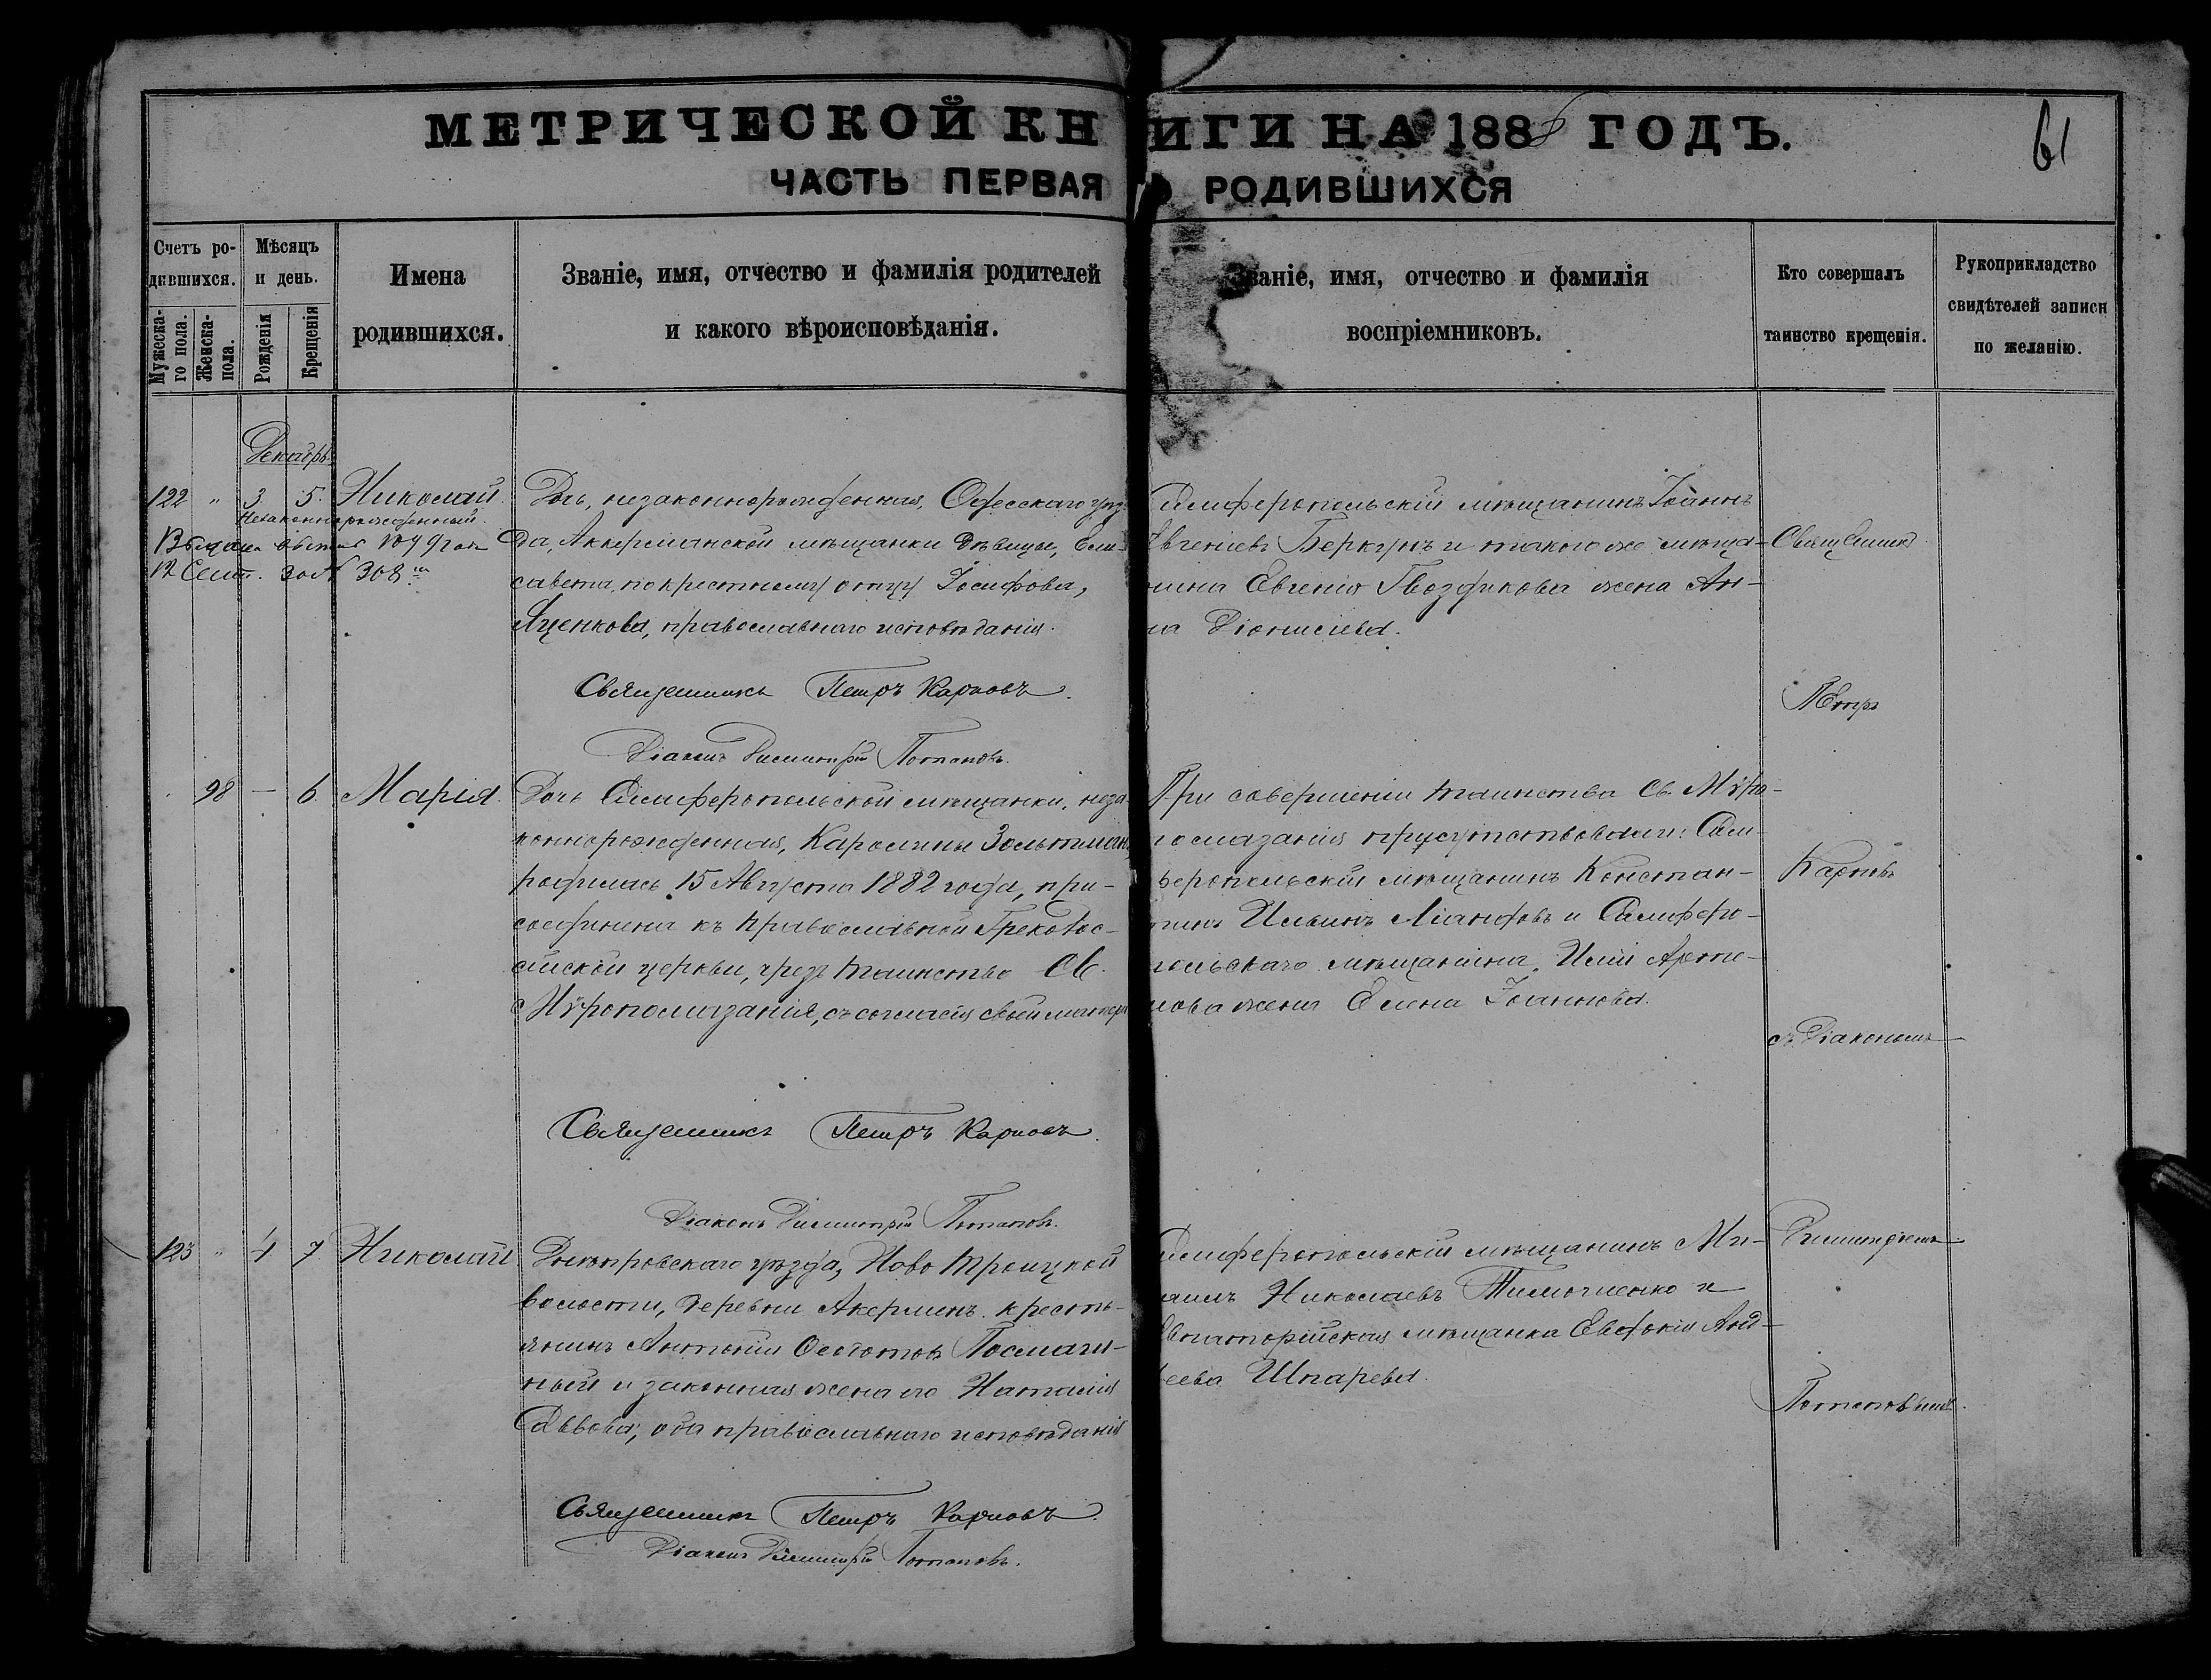 МЕТРИЧЕСКОЙ КНИГИ НА 1888 ГОДЪ.
61
ЧАСТЬ ПЕРВАЯ О РОДИВШИХСЯ
Счетъ родившихся.
Мужеска-го пола.
Женска- пола.
Мѣсяцъ и день.
Рожденія
Крещенія
Имена
родившихся.
Званіе, имя, отчество и фамилія родителей
и какого вѣроисповѣданія.
Званіе, имя, отчество и фамилія
воспріемниковъ.
Кто совершалъ
таинство крещенія.
Рукоприкладство
свидѣтелей записи
по желанію.
Декабрь
122 " 3 5. Николай.
Незаконнорожденный.
12 Сент. за № 308
Дочь, незаконнорожденная, Одесскаго уѣз-
да, Аккерманской мѣщанки дѣвицы, Ели-
савета, по крестному отцу Іосифова,
Яценкова, православнаго исповѣданія.
Священникъ Петръ Карповъ.
Діаконъ Димитрій Потаповъ.
Симферопольскій мѣщанинъ Іоаннъ
Евгеніевъ Беркунъ и такого же мѣща-
нина Евгенія Гвоздикова жена Ан-
на Діонисіева.
98 — 6. Марія.
Дочь Симферопольской мѣщанки, неза-
коннорожденная, Каролины Зольтман,
родилась 15 Августа 1882 года, при-
соединена къ православной Грекорос-
сійской церкви, чрезъ таинство Св.
Мѵропомазанія, съ согласія своей матери
Священникъ Петръ Карповъ.
Діаконъ Димитрій Потаповъ.
При совершеніи таинства Св. Мѵро-
помазанія присутствовали: Сим-
феропольскій мѣщанинъ Констан-
тинъ Ильинъ Ліандовъ и Симферо-
польскаго мѣщанина Иліи Арте-
мова жена Елена Іоаннова.
123 " 4 7 Николай
Днѣпровскаго уѣзда, Ново Троицкой
волости, деревни Акерменъ кресть-
янинъ Антоній Ѳедотовъ
и законная жена его Наталія
Саввова; оба православнаго исповѣданія
Священникъ Петръ Карповъ.
Діаконъ Димитрій Потаповъ.
Симферопольскій мѣщанинъ Ми-
хаилъ Николаевъ Тимотченко и
Евпаторійская мѣщанка Евдокія Анд-
реева Шпарева.
Священникъ
Петръ
Карповъ
съ Діакономъ
Димитріемъ
Потаповымъ.